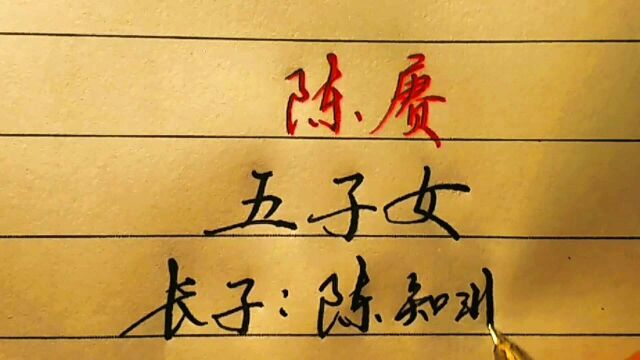 陈赓
五子女
长子：陈知